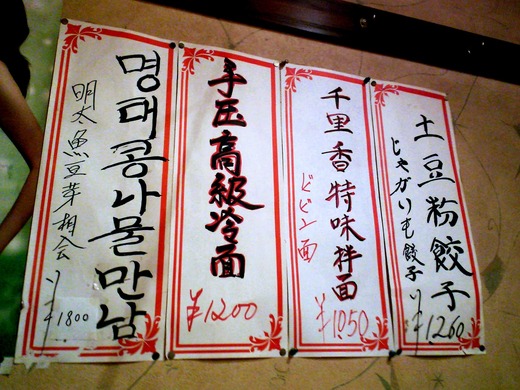 土豆粉餃子
じゃがいも餃子
¥1260
千里香特味拌面
ビビン面
¥1050
手压高級冷面
¥1200
명태콩나물만남
明太魚豆芽相会
¥1800